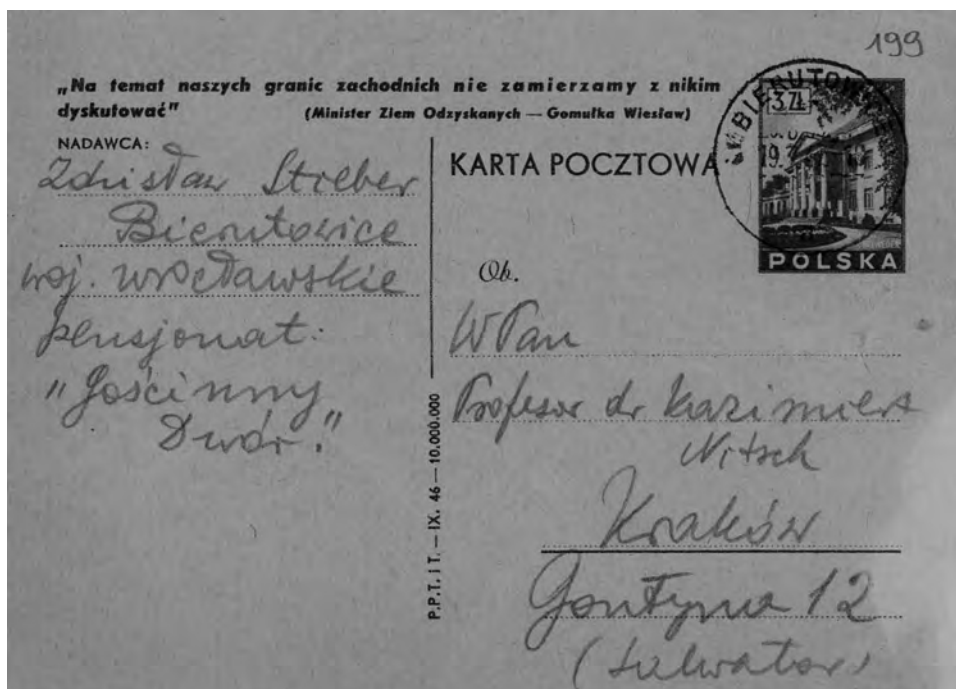 199
„Na temat naszych granic zachodnich nie zamierzamy z nikim
dyskutować"
(Minister Ziem Odzyskanych — Gomułka Wiesław)
NADAWCA:
Zdzisław Stieber
Bierutowice
woj. wrocławskie
pensjonat:
„Gościnny
Dwór."
P.P.T. i T. — IX. 46 — 10.000.000
KARTA POCZTOWA
3 ZŁ
BIERUTOW
19.
POLSKA
Ob.
WPan
Profesor dr Kazimierz
Nitsch
Kraków
Gontyna 12
(Salwator)